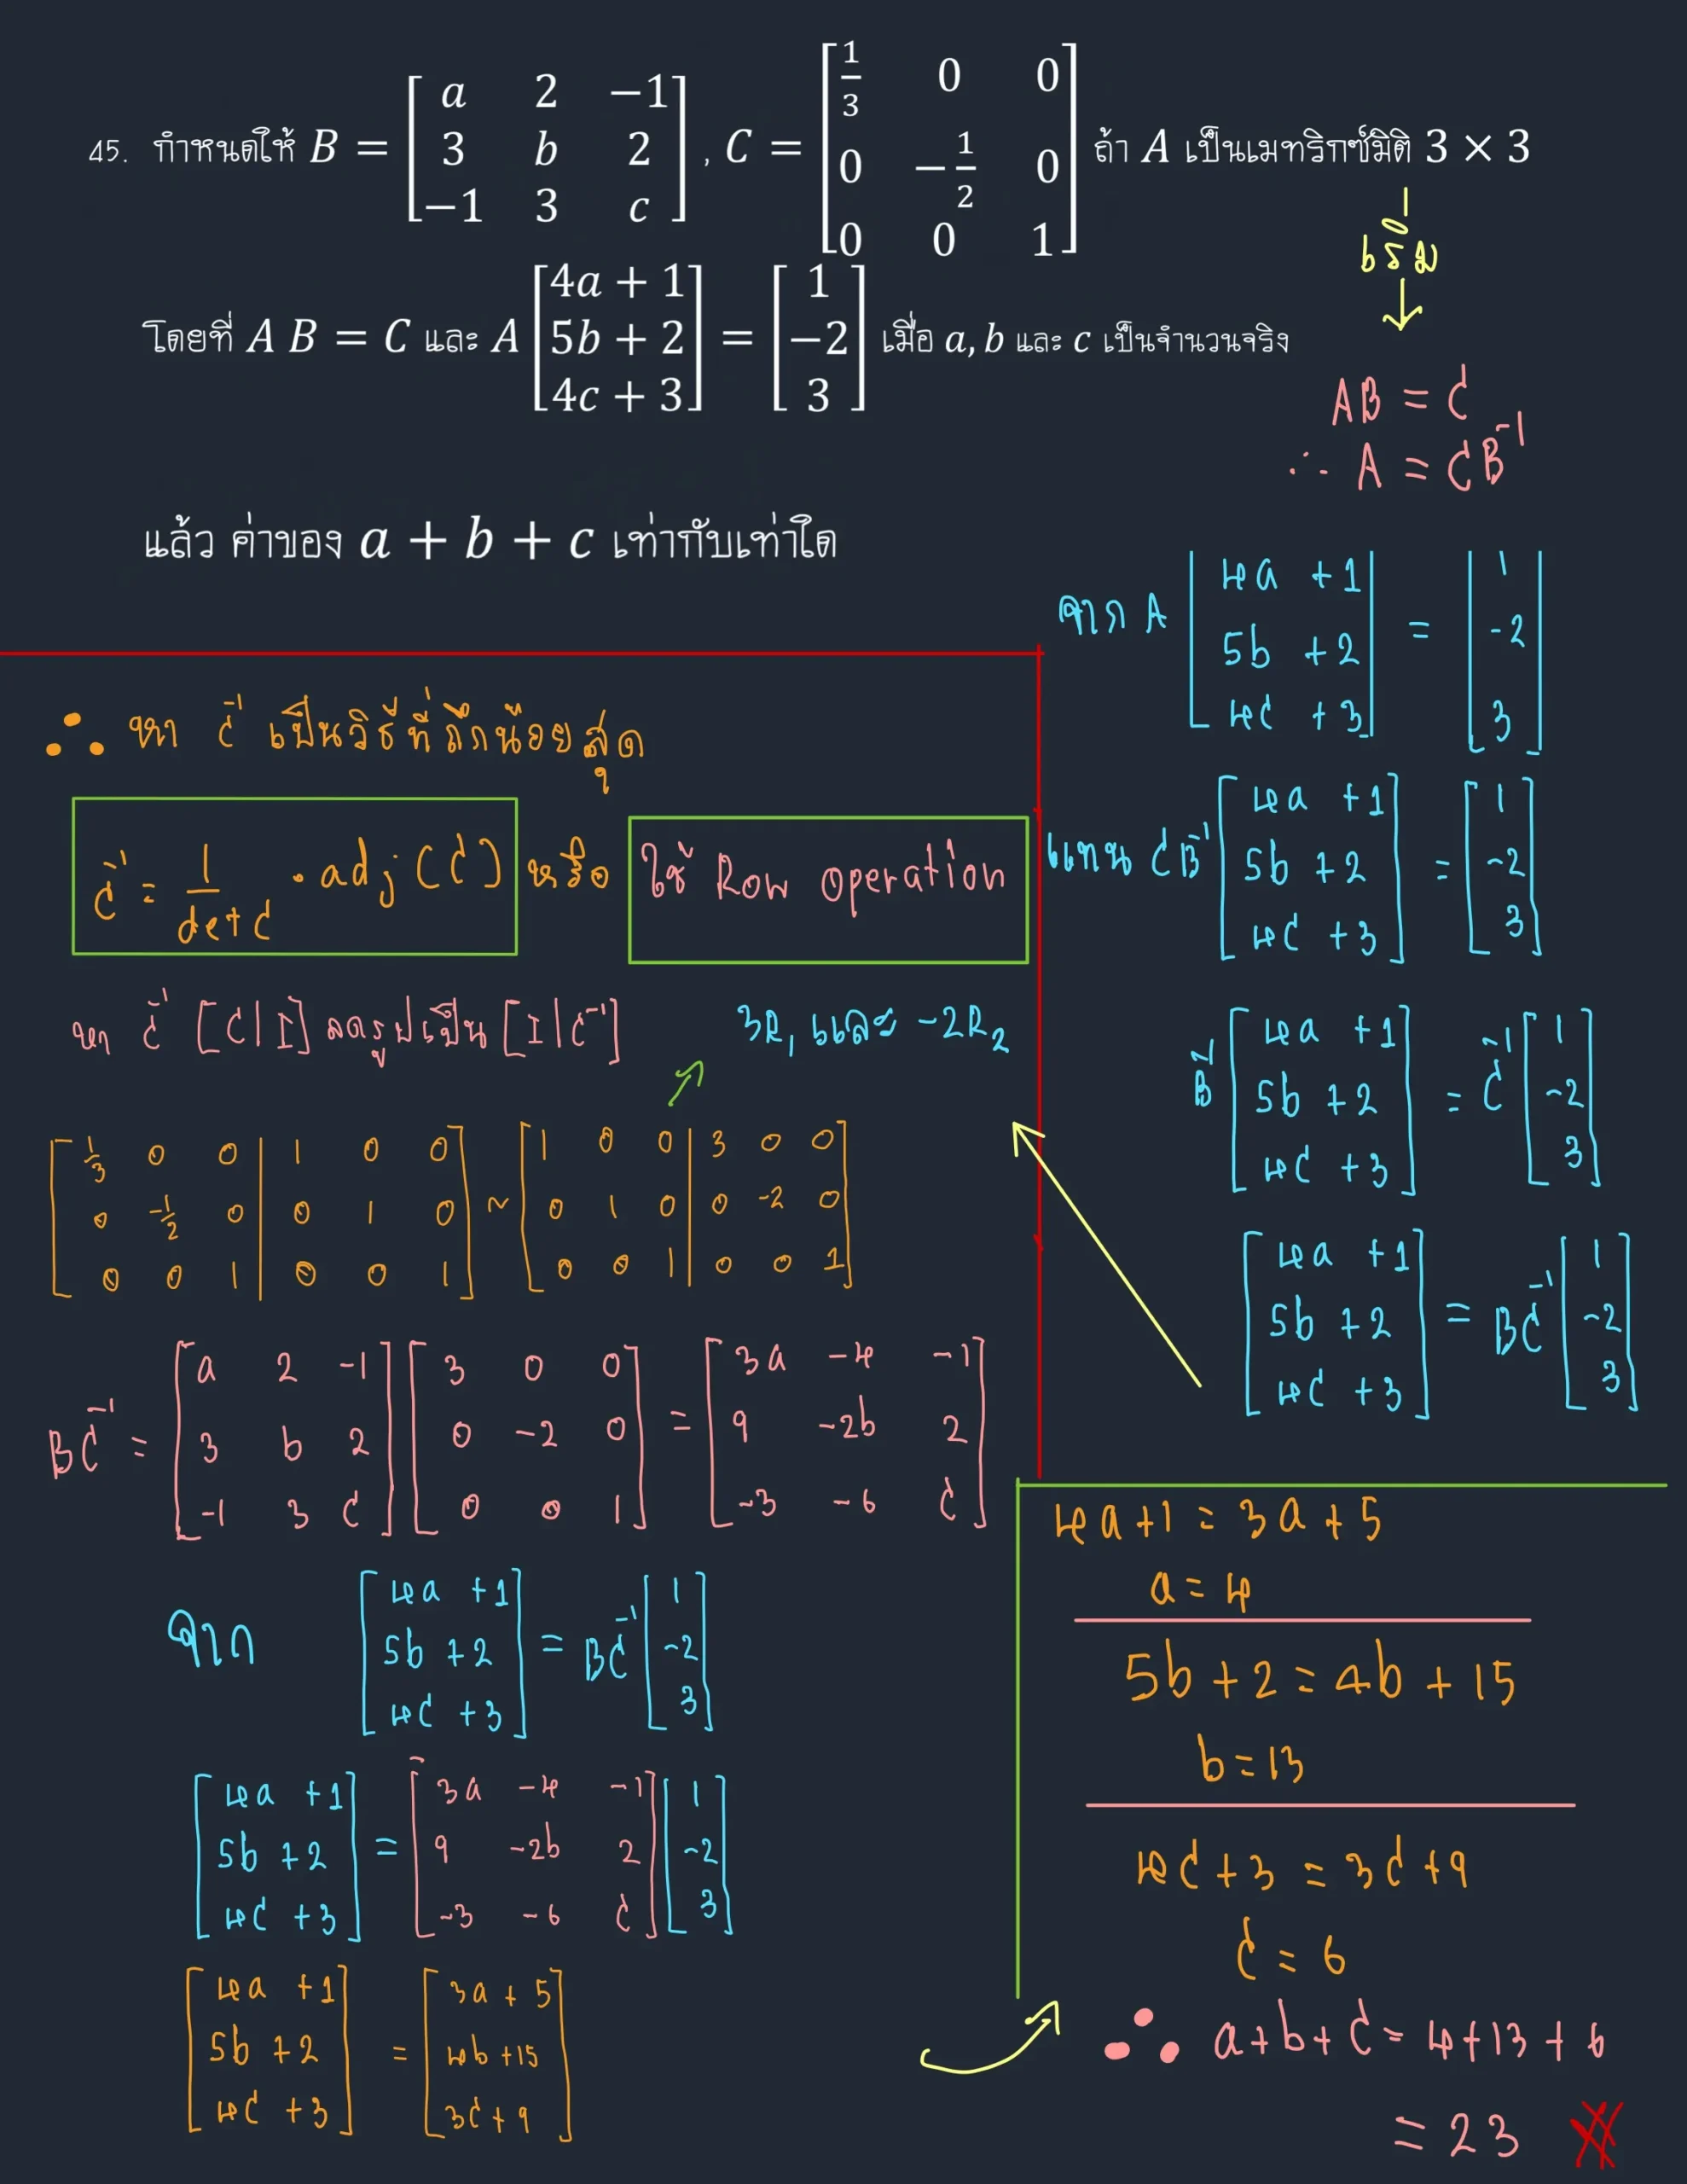 45. กำหนดให้ B = [a 2 −1; 3 b 2; −1 3 c], C = [1/3 0 0; 0 −1/2 0; 0 0 1] ถ้า A เป็นเมทริกซ์มิติ 3 × 3
โดยที่ A B = C และ A [4a + 1; 5b + 2; 4c + 3] = [1; −2; 3] เมื่อ a, b และ c เป็นจำนวนจริง
แล้ว ค่าของ a + b + c เท่ากับเท่าใด
เริ่ม
AB = C
∴ A = CB⁻¹
จาก A [4a +1; 5b +2; 4c +3] = [1; -2; 3]
แทน CB⁻¹ [4a +1; 5b +2; 4c +3] = [1; -2; 3]
B⁻¹ [4a +1; 5b +2; 4c +3] = C⁻¹ [1; -2; 3]
[4a +1; 5b +2; 4c +3] = BC⁻¹ [1; -2; 3]
∴ หา C⁻¹ เป็นวิธีที่ถึกน้อยสุด
C⁻¹ = 1/det C · adj(C) หรือ ใช้ Row operation
หา C⁻¹ [C|I] ลดรูปเป็น [I|C⁻¹]
3R₁ และ -2R₂
[1/3 0 0 | 1 0 0; 0 -1/2 0 | 0 1 0; 0 0 1 | 0 0 1] ~ [1 0 0 | 3 0 0; 0 1 0 | 0 -2 0; 0 0 1 | 0 0 1]
BC⁻¹ = [a 2 -1; 3 b 2; -1 3 c] [3 0 0; 0 -2 0; 0 0 1] = [3a -4 -1; 9 -2b 2; -3 -6 c]
จาก [4a +1; 5b +2; 4c +3] = BC⁻¹ [1; -2; 3]
[4a +1; 5b +2; 4c +3] = [3a -4 -1; 9 -2b 2; -3 -6 c] [1; -2; 3]
[4a +1; 5b +2; 4c +3] = [3a + 5; 4b +15; 3c + 9]
4a+1 = 3a + 5
a = 4
5b + 2 = 4b + 15
b = 13
4c + 3 = 3c + 9
c = 6
∴ a+b+c = 4+13+6
= 23